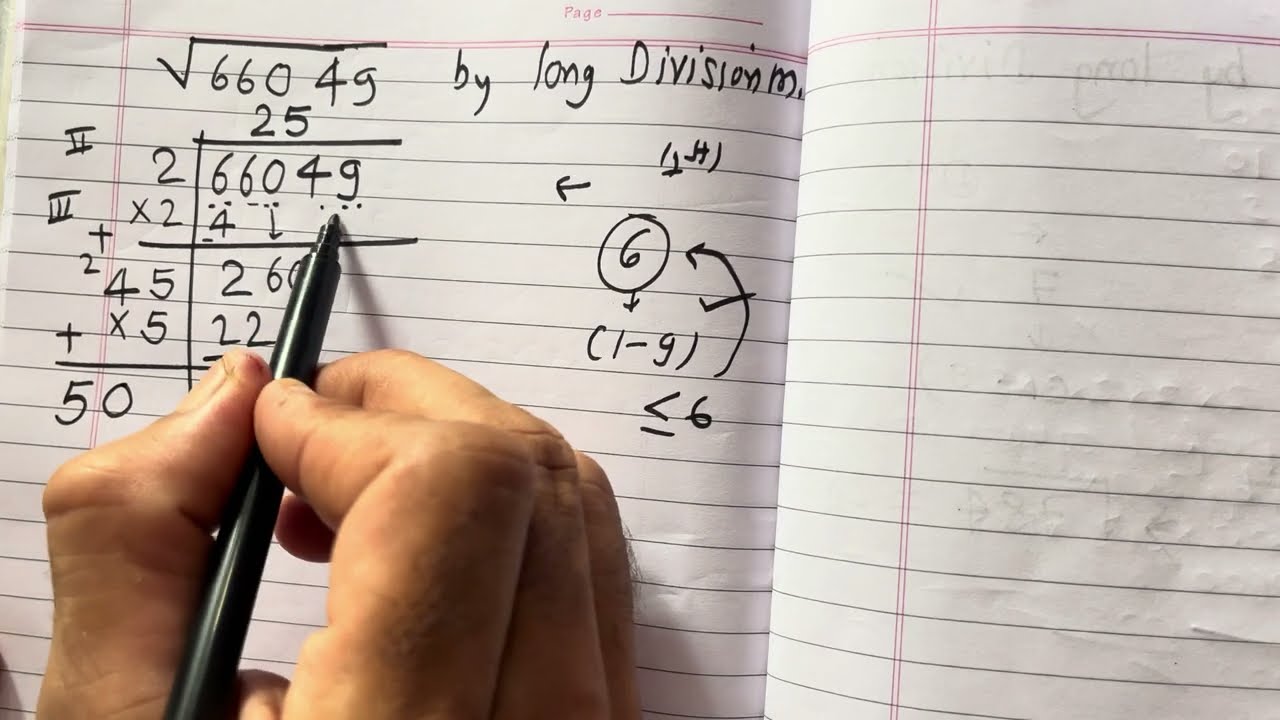 Page
√66049 by long Division m.
25
II 2 66049
III ×2 4 ↓
+
2 45 266
+ ×5 22
50
(1st)
←
6
↓
(1-9)
≤6